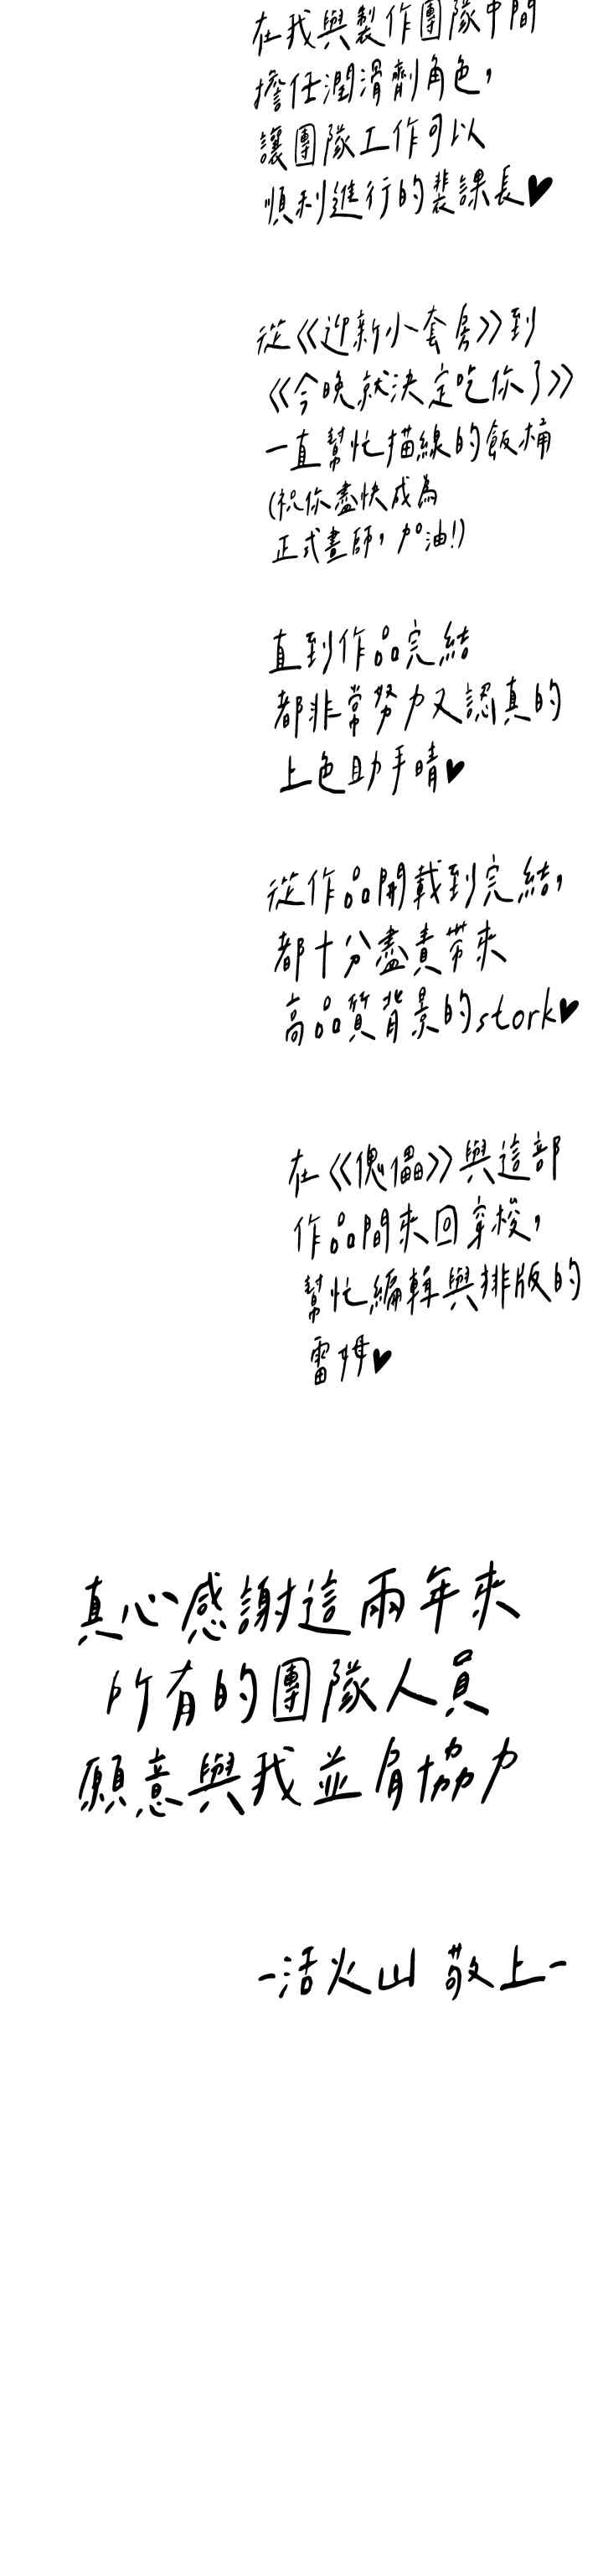 在我與製作團隊中間
擔任潤滑劑角色，
讓團隊工作可以
順利進行的裴課長♥
從《迎新小套房》到
《今晚就決定吃你了》
一直幫忙描線的飯桶
(祝你盡快成為
正式畫師，加油!)
直到作品完結
都非常努力又認真的
上色助手晴♥
從作品開載到完結，
都十分盡責帶來
高品質背景的stork♥
在《傀儡》與這部
作品間來回穿梭，
幫忙編輯與排版的
雷姆♥
真心感謝這兩年來
所有的團隊人員
願意與我並肩協力
-活火山 敬上-